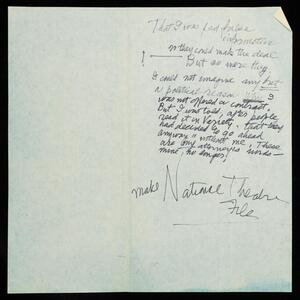 That I was fed false
information
they could make the deal
But so were they.
I could not imagine any but
a political reason why I
was not offered a contract.
But I was told, after people
read it in Variety, that they
had decided to go ahead
anyone without me. These
are my attorneys words -
mine, no longer!
make National Theatre
File